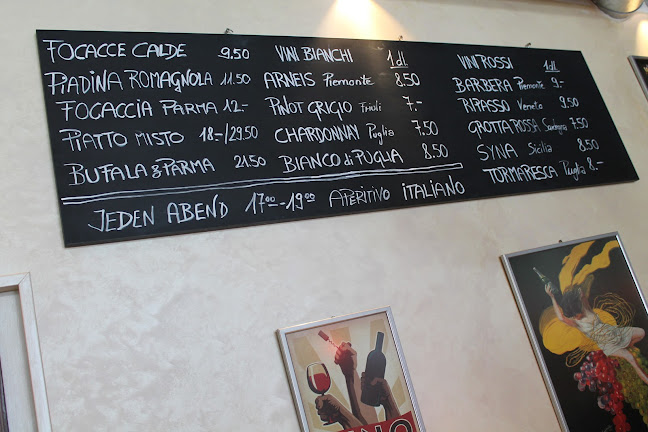 FOCACCE CALDE 9.50
PIADINA ROMAGNOLA 11.50
FOCACCIA PARMA 12.-
PIATTO MISTO 18.-/29.50
BUFALA & PARMA 21.50
VINI BIANCHI 1dl.
ARNEIS Piemonte 8.50
PINOT GRIGIO Friuli 7.-
CHARDONNAY Puglia 7.50
BIANCO di PUGLIA 8.50
VINI ROSSI 1dl.
BARBERA Piemonte 9.-
RIPASSO Veneto 9.50
GROTTA ROSSA Sardegna 7.50
SYNA Sicilia 8.50
TORMARESCA Puglia 8.-
JEDEN ABEND 17⁰⁰-19⁰⁰ APERITIVO ITALIANO